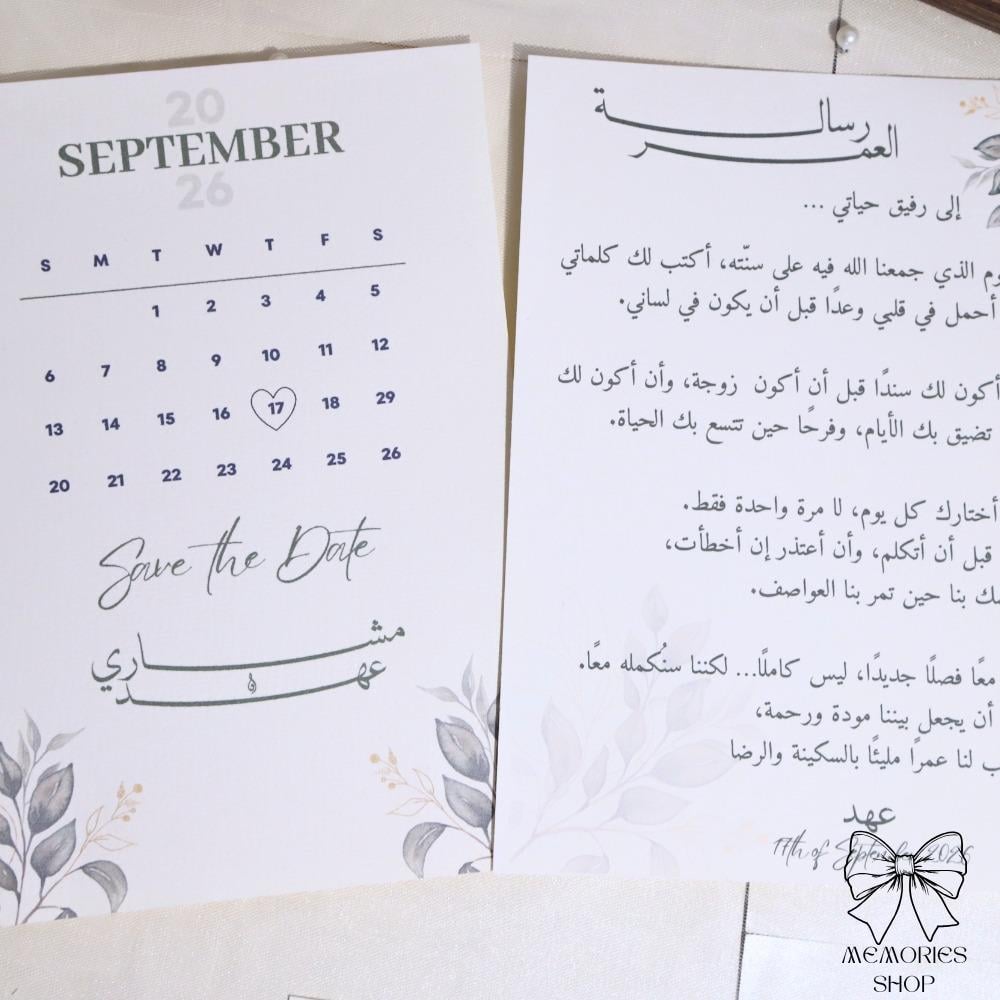 20
SEPTEMBER
26
S M T W T F S
1 2 3 4 5
6 7 8 9 10 11 12
13 14 15 16 17 18 29
20 21 22 23 24 25 26
Save the Date
مشاري
و
عهد
رسالة
العمر
إلى رفيق حياتي ...
الذي جمعنا الله فيه على سنّته، أكتب لك كلماتي
أحمل في قلبي وعدًا قبل أن يكون في لساني.
أكون لك سندًا قبل أن أكون زوجة، وأن أكون لك
تضيق بك الأيام، وفرحًا حين تتسع بك الحياة.
أختارك كل يوم، لا مرة واحدة فقط.
قبل أن أتكلم، وأن أعتذر إن أخطأت،
بنا حين تمر بنا العواصف.
معًا فصلًا جديدًا، ليس كاملًا... لكننا سنُكمله معًا.
أن يجعل بيننا مودة ورحمة،
لنا عمرًا مليئًا بالسكينة والرضا
عهد
17th of September 2026
MEMORIES
SHOP